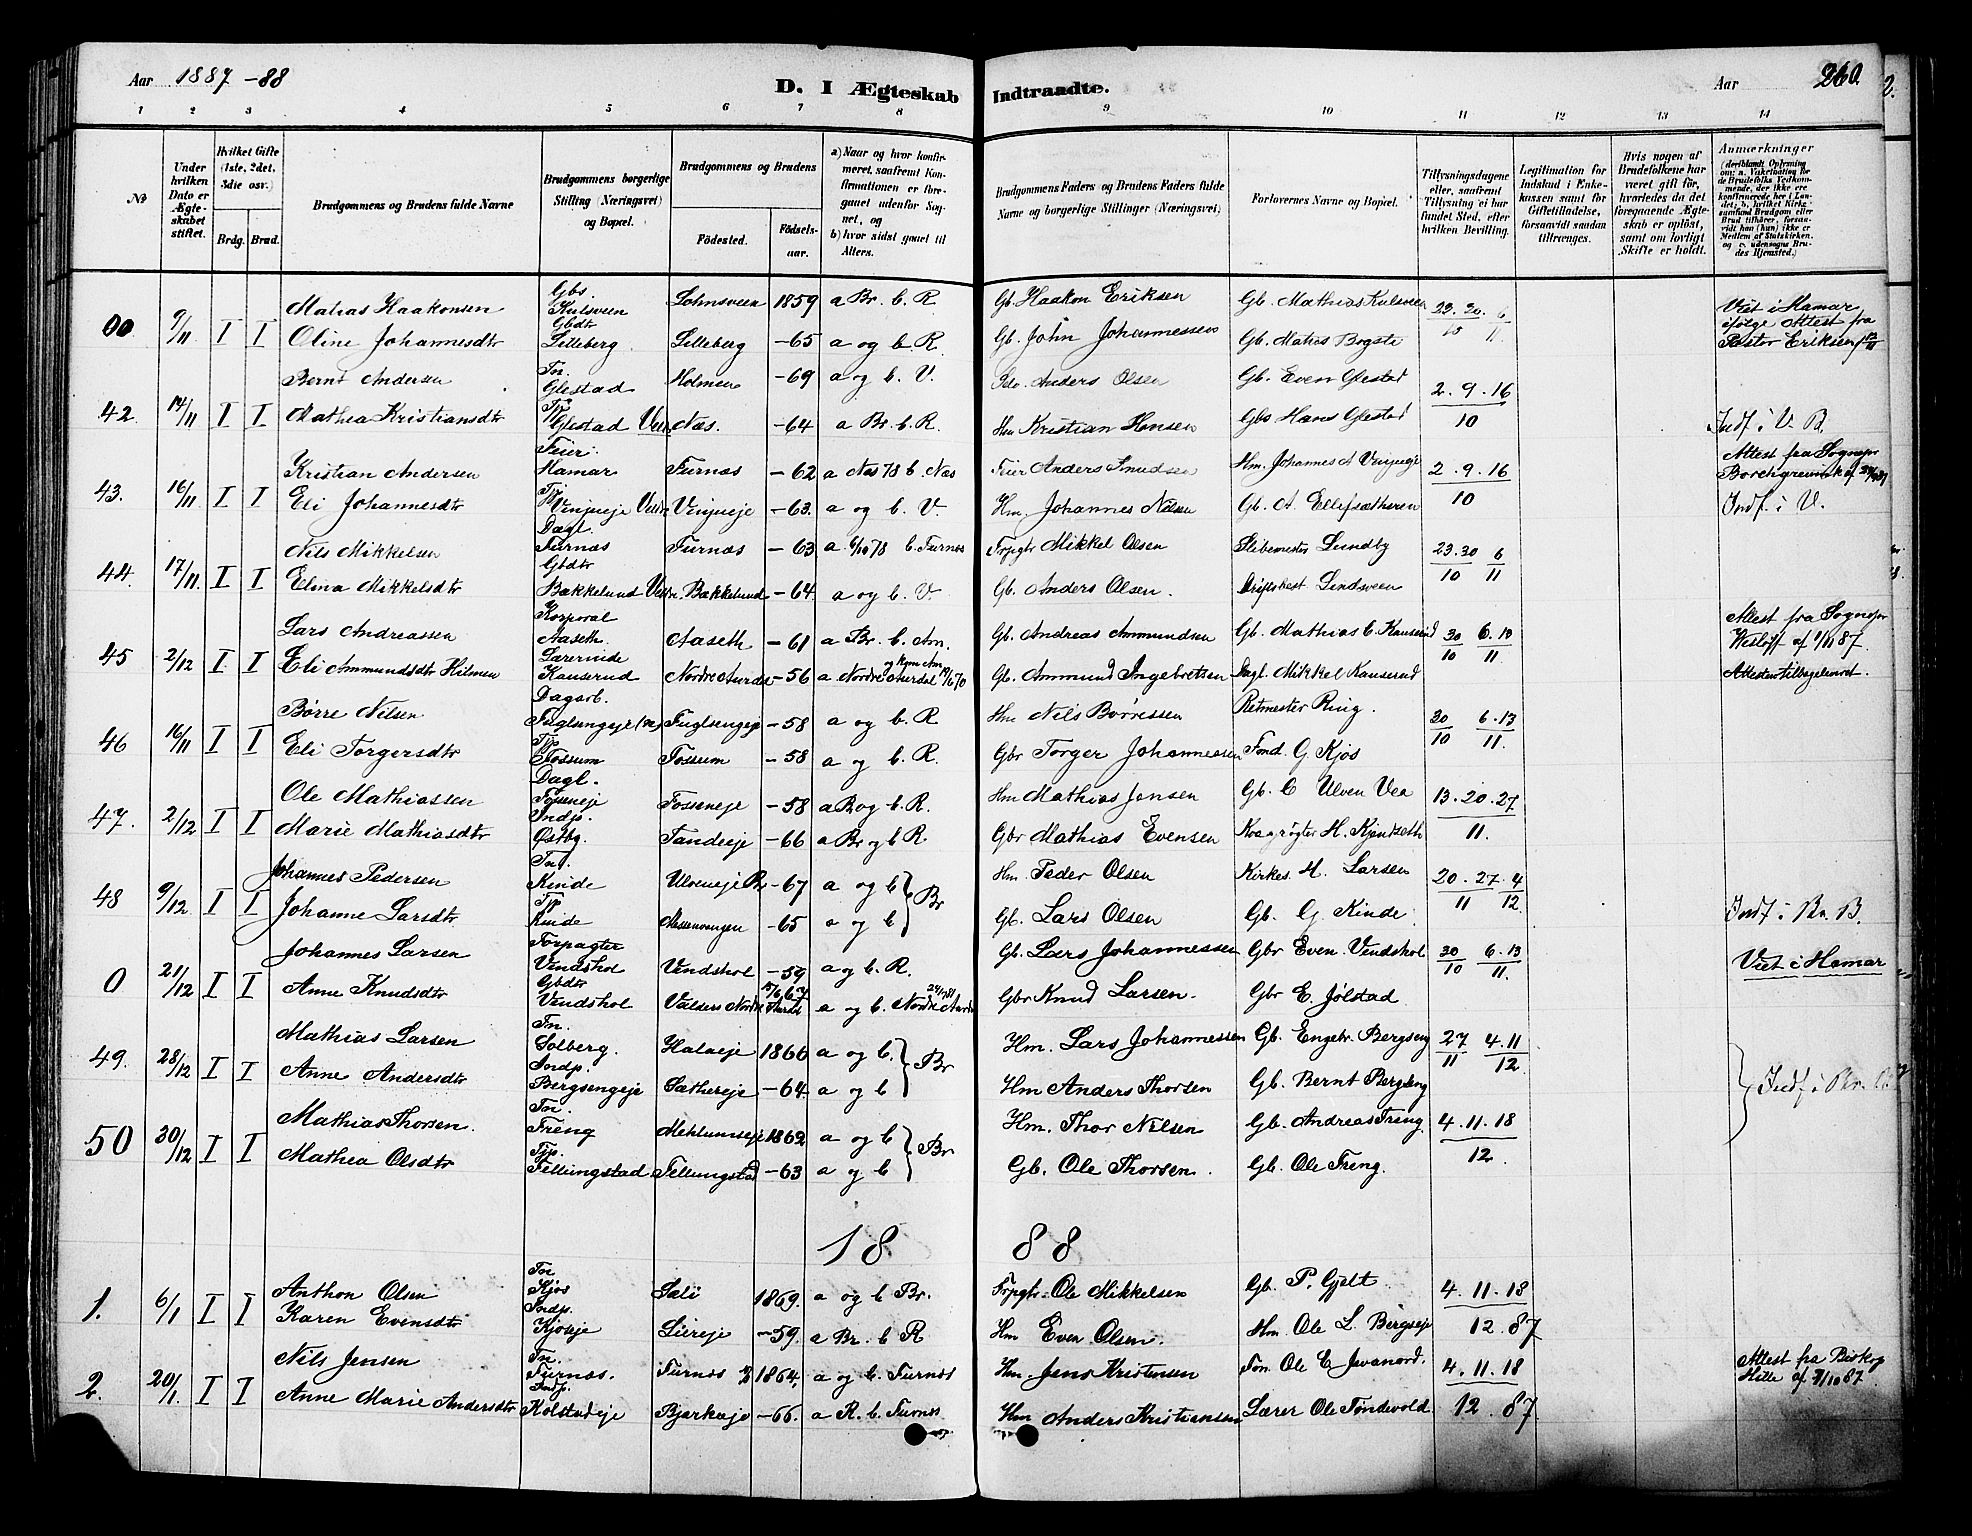 Aar 1887-88
D. I Ægteskab Indtraadte.
Aar 260.
1 2 3 4 5 6 7 8 9 10 11 12 13 14
№
Under hvilken Dato er Ægteskabet stiftet.
Hvilket Gifte (1ste, 2det, 3die osv.)
Brdg. Brud.
Brudgommens og Brudens fulde Navne
Brudgommens borgerlige Stilling (Næringsvei) og Bopæl.
Brudgommens og Brudens
Födested. Födsels-aar.
a) Naar og hvor konfirmeret, saafremt Konfirmationen er foregaaet udenfor Sognet, og
b) hvor sidst gaaet til Alters.
Brudgommens Faders og Brudens Faders fulde Navne og borgerlige Stillinger (Næringsvei)
Forlovernes Navne og Bopæl.
Tillysningsdagene eller, saafremt Tillysning ei har fundet Sted, efter hvilken Bevilling.
Legitimation for Indskud i Enkekassen samt for Giftetilladelse, forsaavidt saadan tiltrænges.
Hvis nogen af Brudefolkene har været gift för, hvorledes da det foregaaende Ægteskab er oplöst, samt om lovligt Skifte er holdt.
Anmerkninger
00 9/11 I I Matias Haakonsen Gbs. Kulsveen 1859 a Br. b. R. Gb. Haakon Eriksen Gb. Mathias Kulsveen 23. 30. 6 Viet i Hamar
Oline Johannesdtr Gbdtr Lilleberg Lilleberg -65 a og b. R. Gb. John Johannessen Gb. Matias Bogste 10 11 ifølge Attest fra Pastor Eriksen
42. 14/11 I I Bernt Andersen Tn. Glestad Holmen -69 a og b. V. Anders Olsen Gb. Even Glestad 2. 9. 16
Mathea Kristiansdtr Tp Glestad Næs. -64 a Br. b. R. Hm Kristian Hansen Gbs Hans Glestad 10 Indf i V. B.
43. 16/11 I I Kristian Andersen Feier. Hamar Furnæs -62 a Næs 78 b. Næs Feier Anders Knudsen Hm. Johannes A Vinjueje 2. 9. 16 Attest fra Sognepr Borchgrevink
Eli Johannesdtr Tp Vinjueje Vinjueje -63. a og b. V. Hm. Johannes Nilsen Gb. A. Ellefsæthren 10 Indf. i V.
44. 17/11. I I Nils Mikkelsen Dagl. Furnæs Furnæs -63 a. 6/10 78 b. Furnæs Frpgtr Mikkel Olsen Slibemester Lundby 23.30 6
Elina Mikkelsdtr Gbdtr Bækkelund Bækkelund -64. a og b. V. Gb. Anders Olsen. Driftsbest Lindsveen 10 11
45 2/12 I. I Lars Andreassen Korporal Aaseth. Aaseth -61 a Br. b. Am. Gb. Andreas Ammundsen Gb. Mathias C. Kauserud 30 6. 13 Attest fra Sognepr
Eli Ammundsdtr Hilmen Lærerinde Kauserud Nordre Aurdal -56 a Nordre Aurdal 19/6 70 Gb. Ammund Ingebretsen Dagl. Mikkel Kauserud 10 11. Attesten tilbageleveret.
46 16/11 I I Børre Nilsen Dagarb. Fuglsengeje Fuglsengeje -58 a og b. R Hm Nils Børressen Retmester Ring. 30 6. 13
Eli Torgersdtr Tp. Fossum Fossum -58 a og b. R. Gbr Torger Johannessen Fond. G Kjos 10 11.
47. 2/12 I I Ole Mathiassen Dagl. Fosseneje Fosseneje -58 a R og b. R. Hm Mathias Jensen Gb. C Ulven Vea 13. 20. 27
Marie Mathiasdtr Indp. Østbg. Tandeeje -66 a Br og b R Gbr Mathias Evensen Kvægrøgter H. Kjendseth 11.
48 9/12 I I Johannes Pedersen Tn. Kinde Ulveneje Br -67 a og b Br Hm. Peder Olsen Kirkes. H. Larsen 20. 27. 4
Johanne Larsdtr Tp Kinde Messenvangen -65 a og b Gb. Lars Olsen Gb. G Kinde 11 12. Indf i Br. B.
0 21/12 I I Johannes Larsen Forpagter Vendshol Vendshol -59 a og b. R. Gb. Lars Johannessen Gbr Even Vendshol 30 6. 13 Viet i Hamar
Anne Knudsdtr Gbdtr Vendshol Valders Nordre Aurdal 15/6 67 a og b. Nordre Aurdal Gbr Knud Larsen. Gbr E. Jølstad 10 11.
49. 28/12 I I Mathias Larsen Tn. Solberg. Halaeje 1866 a og b. Br Hm. Lars Johannessen Gb. Engebr. Bergseng 27 4. 11
Anne Andersdtr Indp. Bergsengeje Sæthereje -64. a og b Hm Anders Thorsen Gb. Bernt Bergseng 11 12. Indf. i Br. B.
50 30/12 I I Mathias Thorsen. Tn. Freng Mehlumseje 1862 a og b Br Hm. Thor Nilsen Gb. Andreas Freng. 4. 11. 18
Mathea Olsdtr Tp. Tellungstad Tellungstad -63 a og b Gb. Ole Thorsen. Gb. Ole Freng. 12.
1888
1. 6/1 I I Anthon Olsen Tn Kjos Sæli 1869. a og b Br. Frpgtr. Ole Mikkelsen Gb. P. Gjelt 4. 11. 18
Karen Evensdtr Indp. Kjoseje Liereje -59. a Br. b R Hm Even Olsen. Hm. Ole L. Bergseje 12. 87
2. 20/1. I I Nils Jensen Tn. Furnæs. Furnæs 1864, a og b. Furnæs Hm. Jens Kristensen Ole E. Jevanord. 4. 11. 18 Attest fra Biskop Hille af 7/10 87.
Anne Marie Andersdtr Indp. Kolstadeje Bjørkeeje -66. a R. b. Furnæs Hm Anders Kristiansen Lærer Ole Tøndevold. 12. 87